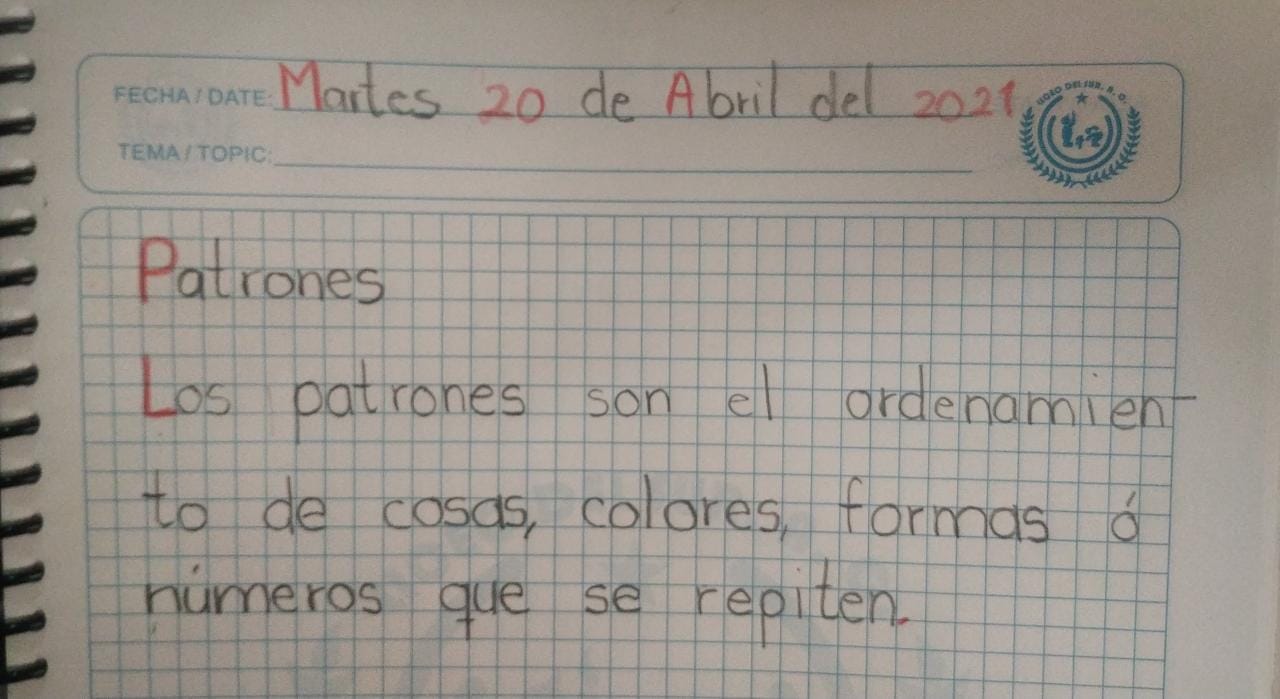 FECHA / DATE: Martes 20 de Abril del 2021
TEMA / TOPIC:
Patrones
Los patrones son el ordenamien-
to de cosas, colores, formas ó
números que se repiten.